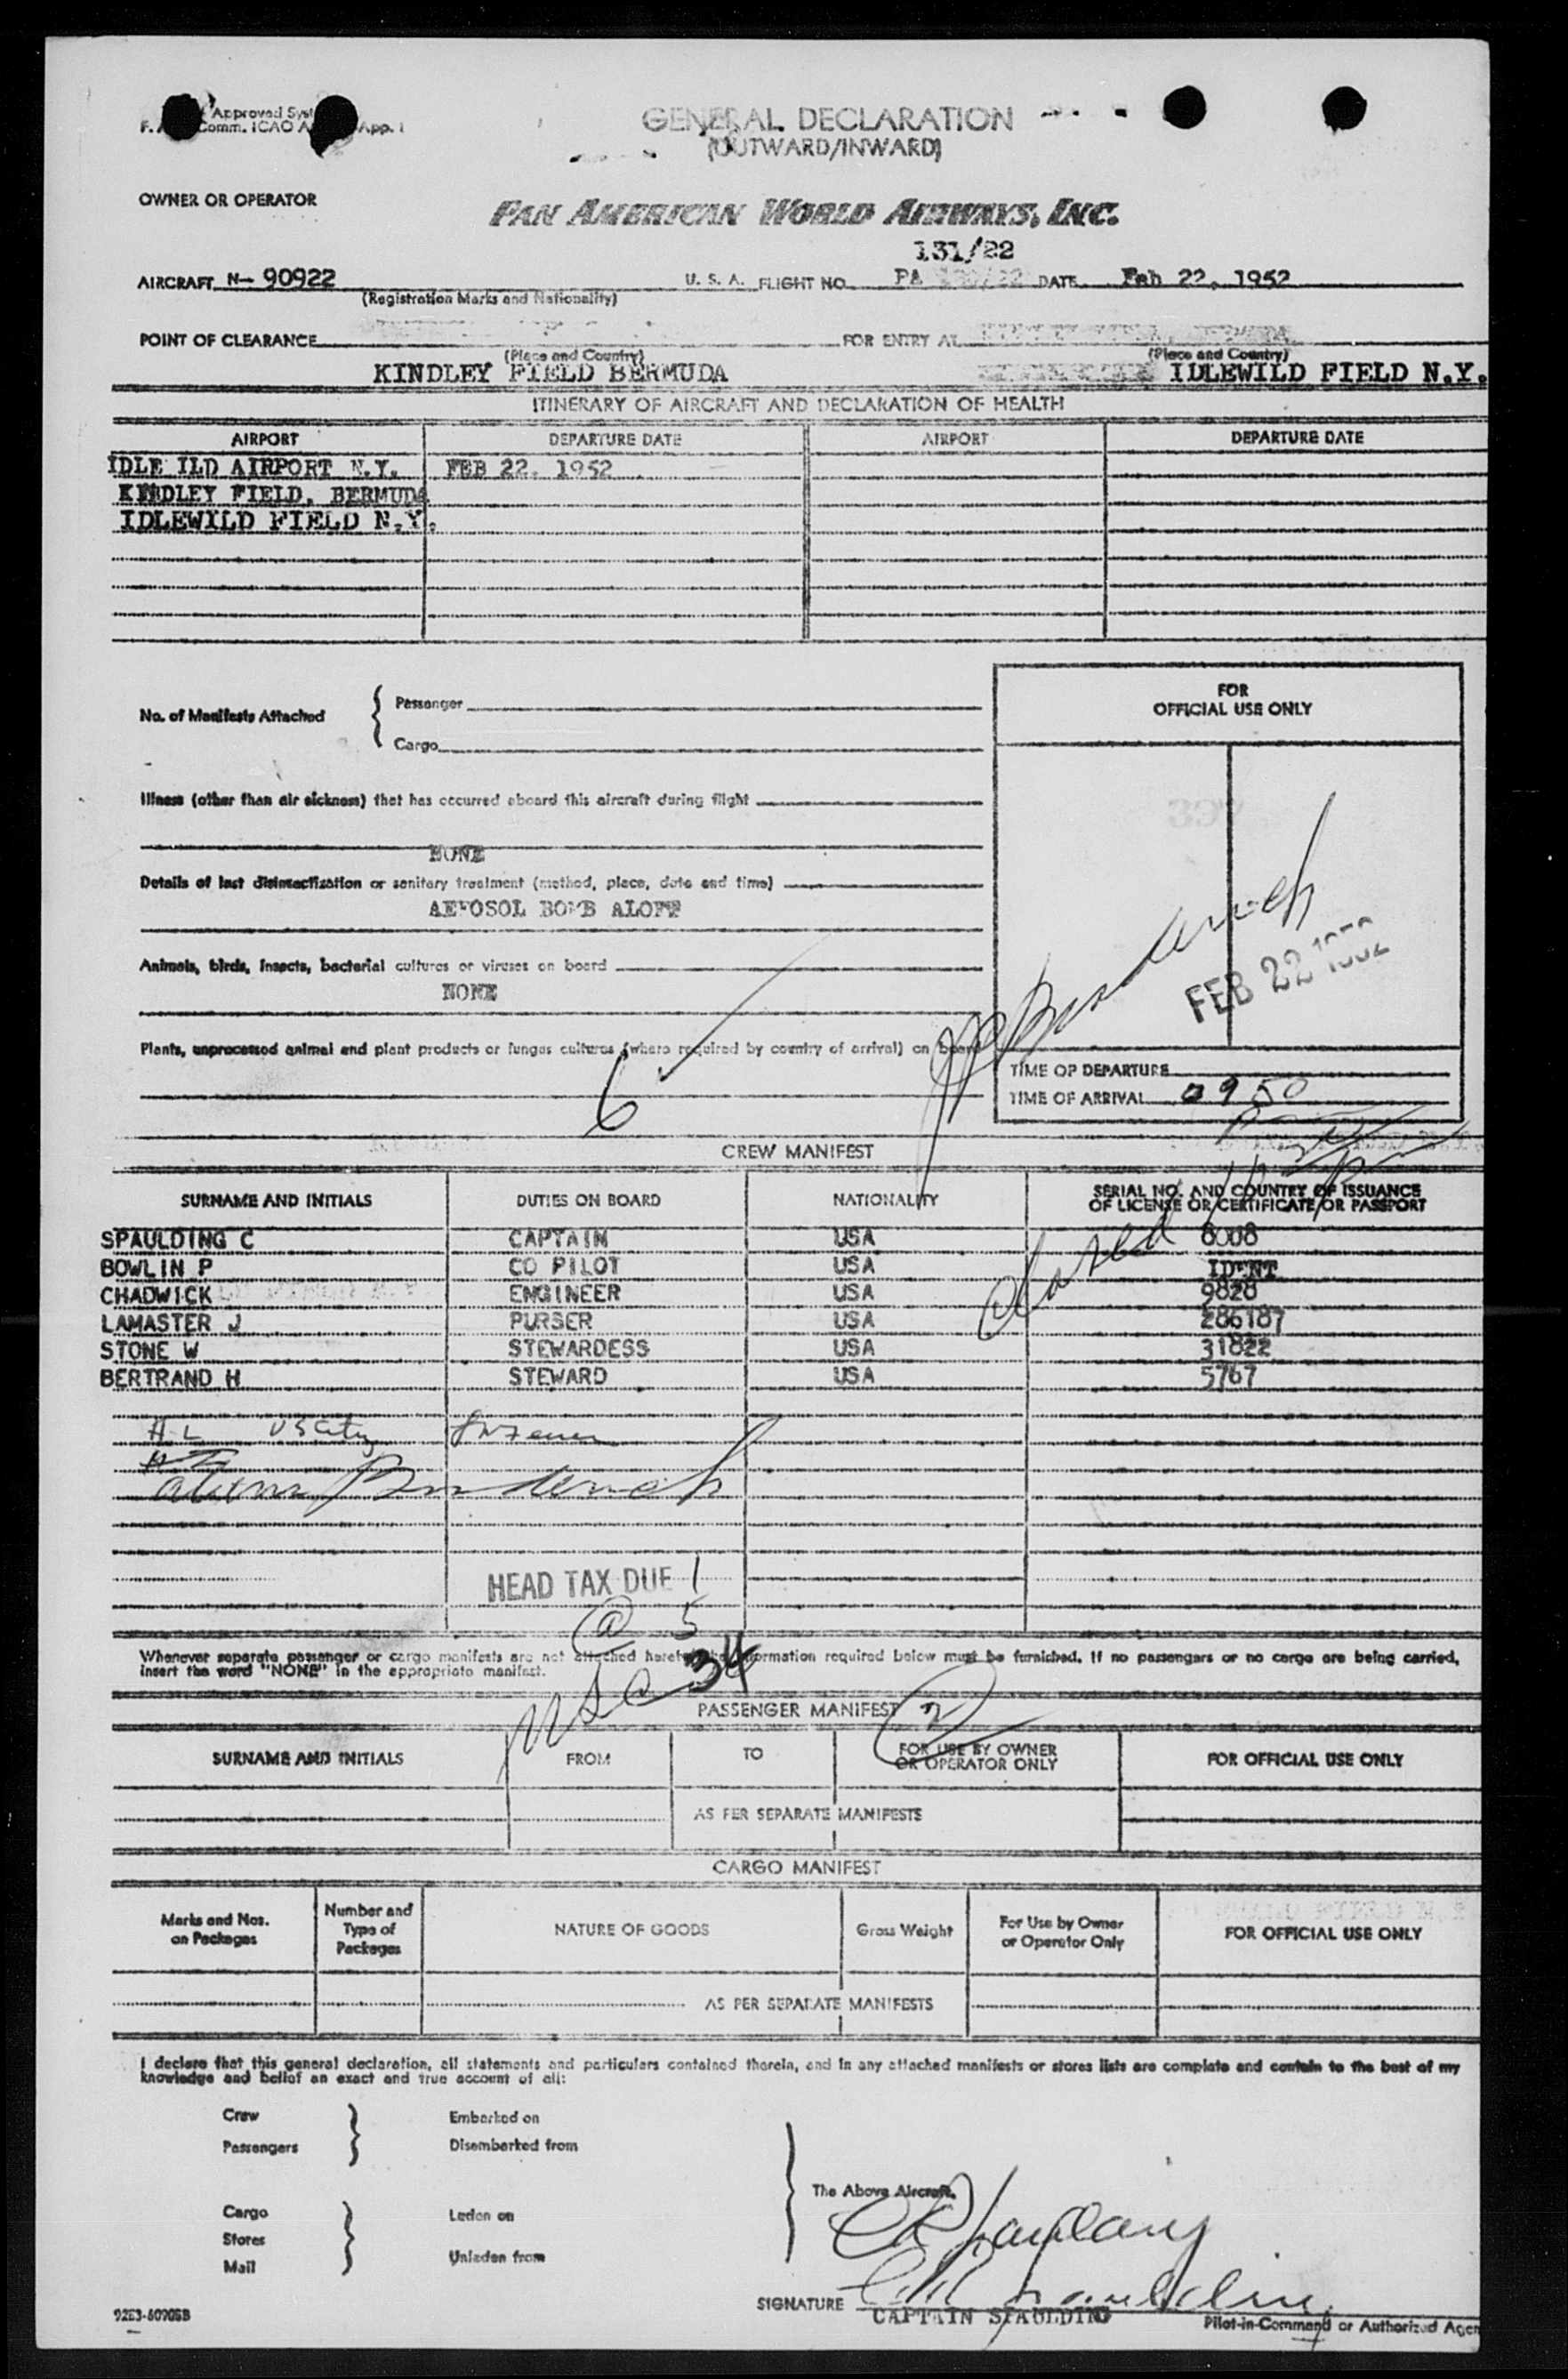 Approved Syst
F. Comm. ICAO App. 1
GENERAL DECLARATION
(OUTWARD/INWARD)
OWNER OR OPERATOR
PAN AMERICAN WORLD AIRWAYS, INC.
131/22
AIRCRAFT N- 90922 U. S. A. FLIGHT NO. PA DATE Feb 22, 1952
(Registration Marks and Nationality)
POINT OF CLEARANCE FOR ENTRY AT
(Place and Country) (Place and Country)
KINDLEY FIELD BERMUDA IDLEWILD FIELD N.Y.
ITINERARY OF AIRCRAFT AND DECLARATION OF HEALTH
AIRPORT DEPARTURE DATE AIRPORT DEPARTURE DATE
IDLE ILD AIRPORT N.Y. FEB 22, 1952
KINDLEY FIELD, BERMUDA
IDLEWILD FIELD N.Y.
FOR
OFFICIAL USE ONLY
No. of Manifests Attached { Passenger
Cargo
Illness (other than air sickness) that has occurred aboard this aircraft during flight
NONE
Details of last disinsectization or sanitary treatment (method, place, date and time)
AEROSOL BOMB ALOFT
Animals, birds, insects, bacterial cultures or viruses on board
NONE
FEB 22 1952
Plants, unprocessed animal and plant products or fungus cultures (where required by country of arrival) on board
6
TIME OF DEPARTURE
TIME OF ARRIVAL 0950
CREW MANIFEST
SURNAME AND INITIALS DUTIES ON BOARD NATIONALITY SERIAL NO. AND COUNTRY OF ISSUANCE
OF LICENSE OR CERTIFICATE OR PASSPORT
SPAULDING C CAPTAIN USA 8008
BOWLIN P CO PILOT USA IDENT
CHADWICK ENGINEER USA 9828
LAMASTER J PURSER USA 286187
STONE W STEWARDESS USA 31822
BERTRAND H STEWARD USA 5767
HEAD TAX DUE 1
@ 5
34
Whenever separate passenger or cargo manifests are not attached hereto the information required below must be furnished. If no passengers or no cargo are being carried,
insert the word "NONE" in the appropriate manifest.
USC
PASSENGER MANIFEST 2
SURNAME AND INITIALS FROM TO FOR USE BY OWNER
OR OPERATOR ONLY FOR OFFICIAL USE ONLY
AS PER SEPARATE MANIFESTS
CARGO MANIFEST
Marks and Nos.
on Packages Number and
Type of
Packages NATURE OF GOODS Gross Weight For Use by Owner
or Operator Only FOR OFFICIAL USE ONLY
AS PER SEPARATE MANIFESTS
I declare that this general declaration, all statements and particulars contained therein, and in any attached manifests or stores lists are complete and contain to the best of my
knowledge and belief an exact and true account of all:
Crew Embarked on
Passengers Disembarked from
The Above Aircraft.
Cargo Laden on
Stores
Mail Unladen from
SIGNATURE CAPTAIN SPAULDING
Pilot-in-Command or Authorized Agen